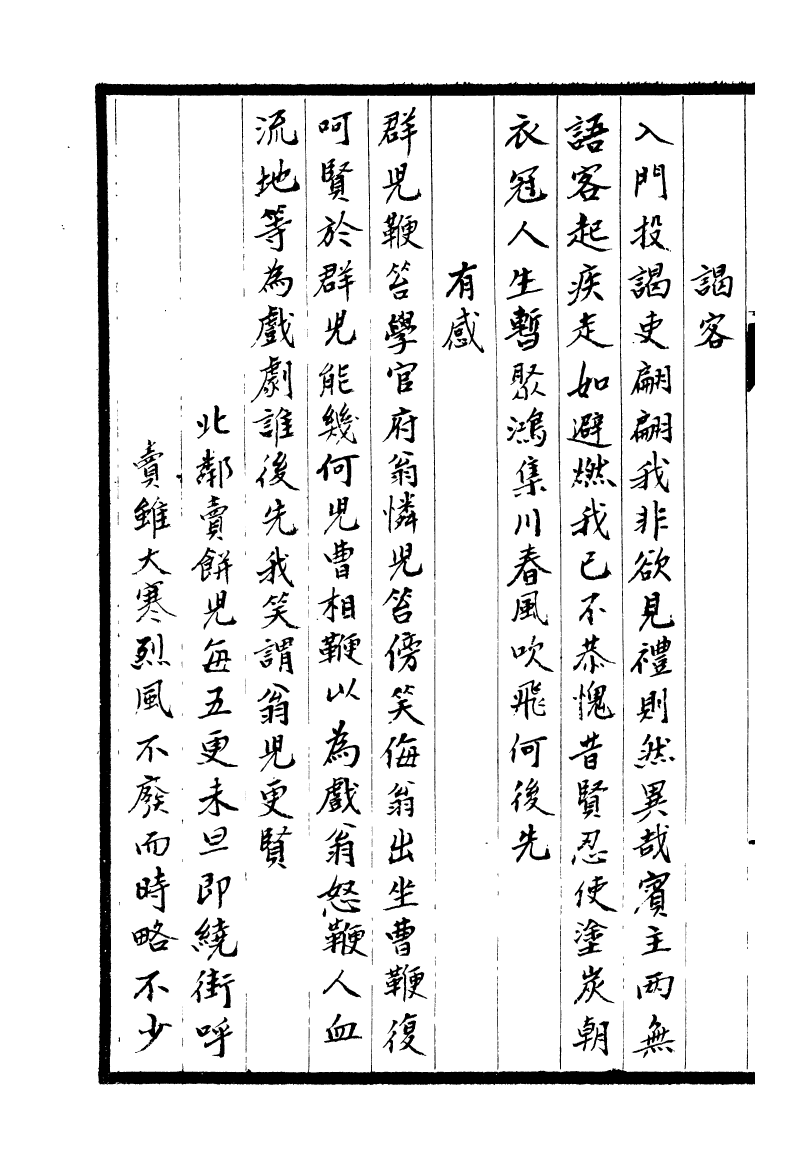 謁客
入門投謁吏翩翩我非欲見禮則然異哉賓主兩無
語客起疾走如避燃我已不恭愧昔賢忍使塗炭朝
衣冠人生暫聚鴻集川春風吹飛何後先
有感
群兒鞭笞學官府翁憐兒笞傍笑侮翁出坐曹鞭復
呵賢於群兒能幾何兒曹相鞭以為戲翁怒鞭人血
流地等為戲劇誰後先我笑謂翁兒更賢
北鄰賣餅兒每五更未旦即繞街呼
賣雖大寒烈風不廢而時略不少